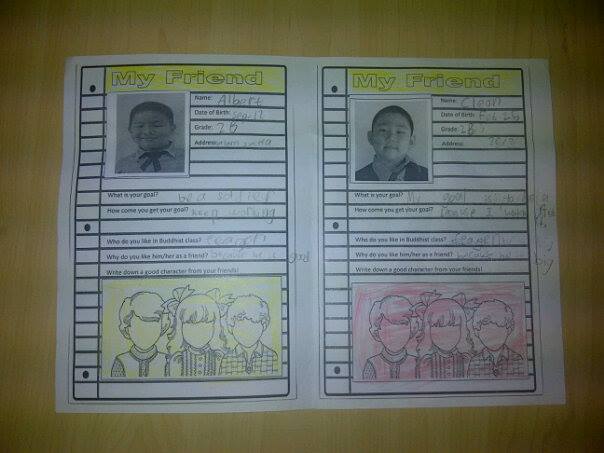 My Friend
Name: Albert
Date of Birth: Sep 17
Grade: 2B
Address:
What is your goal? be a soldier
How come you get your goal? keep working
Who do you like in Buddhist class?
Why do you like him/her as a friend? because he is good
Write down a good character from your friends!
My Friend
Name: Cleon
Date of Birth: Feb 26
Grade: 2B
Address:
What is your goal? My goal is
How come you get your goal? I
Who do you like in Buddhist class?
Why do you like him/her as a friend? because he
Write down a good character from your friends!